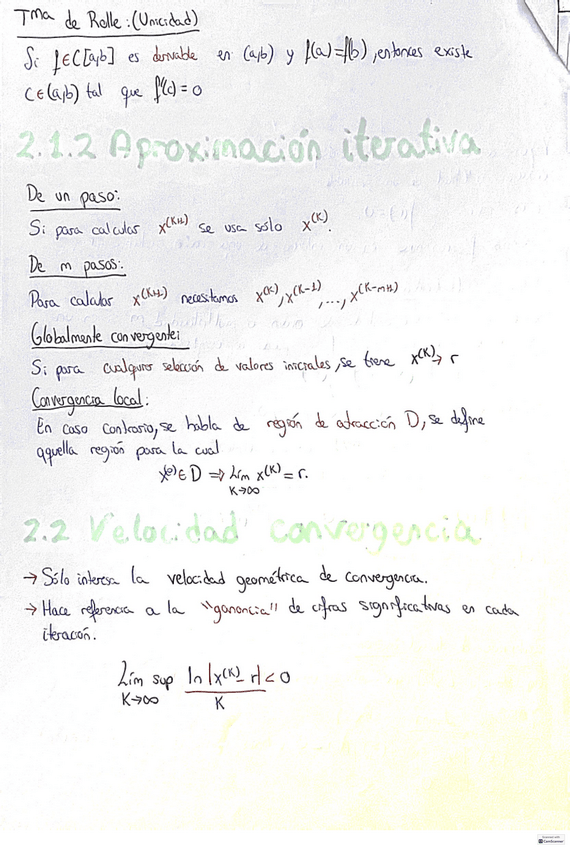 Tma de Rolle: (Unicidad)
Si f∈C[a,b] es derivable en (a,b) y f(a)=f(b), entonces existe
c∈(a,b) tal que f'(c)=0
2.1.2 Aproximación iterativa
De un paso:
Si para calcular x^(K+1) se usa sólo x^(K).
De m pasos:
Para calcular x^(K+1) necesitamos x^(K), x^(K-1), ..., x^(K-m+1)
Globalmente convergente:
Si para cualquier selección de valores iniciales, se tiene x^(K) → r
Convergencia local:
En caso contrario, se habla de región de atracción D, se define
aquella región para la cual
x^(0) ∈ D ⇒ Lím x^(K) = r.
K→∞
2.2 Velocidad convergencia
→ Sólo interesa la velocidad geométrica de convergencia.
→ Hace referencia a la "ganancia" de cifras significativas en cada
iteración.
Lím sup ln |x^(K) - r| < 0
K→∞ K
CamScanner